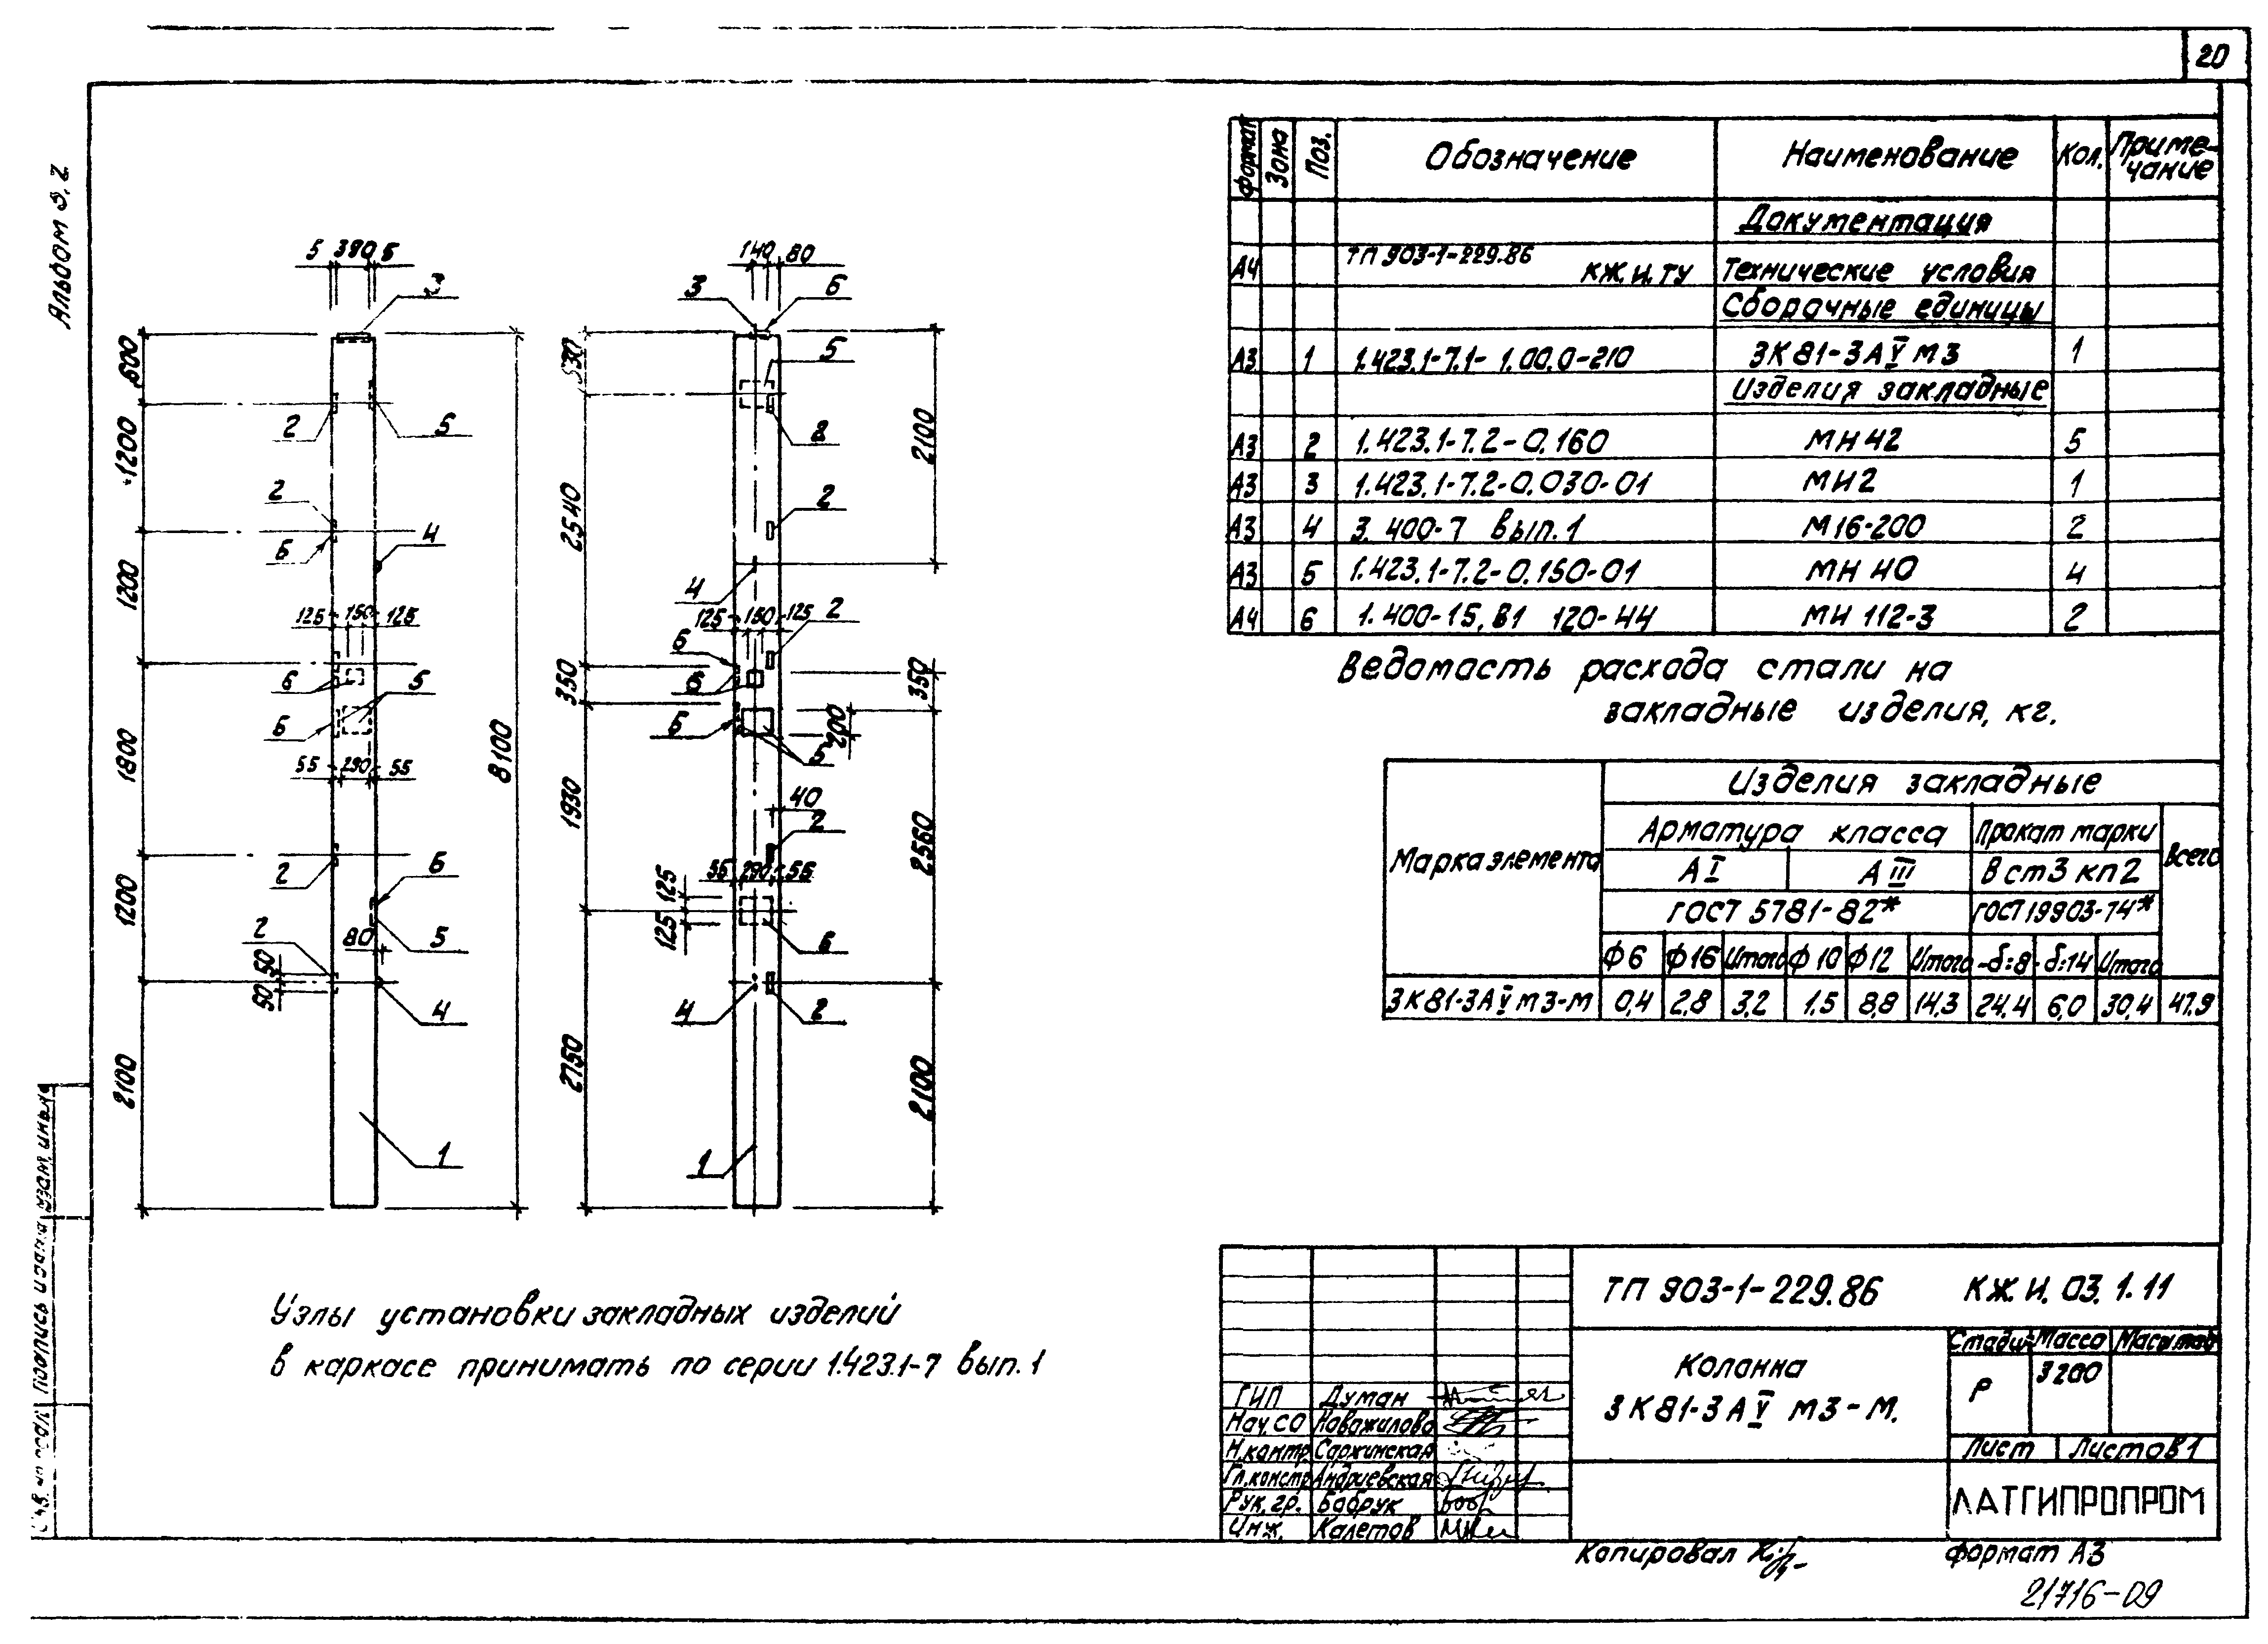 20
Альбом 9.2
5 390 5
3
600
1200
1200
1800
1200
2100
8100
2
5
2
6
4
125 150 125
6
5
6
55 290 55
2
6
80
5
2
50
50
4
1
140 80
3
6
530
5
2
2540
2100
2
4
125 150 125
2
6
6
350
350
6
5
200
1930
40
2
55 290 55
125
125
6
2560
4
2
2750
2100
1
Узлы установки закладных изделий
в каркасе принимать по серии 1.423.1-7 вып. 1
Формат Зона Поз. Обозначение Наименование Кол. Примечание
Документация
А4 ТП 903-1-229.86 КЖ.И.ТУ Технические условия
Сборочные единицы
А3 1 1.423.1-7.1-1.00.0-210 3К81-3АⅣм3 1
Изделия закладные
А3 2 1.423.1-7.2-0.160 МН42 5
А3 3 1.423.1-7.2-0.030-01 МН2 1
А3 4 3.400-7 вып.1 М16-200 2
А3 5 1.423.1-7.2-0.150-01 МН40 4
А4 6 1.400-15.В1 120-44 МН 112-3 2
Ведомость расхода стали на
закладные изделия, кг.
Марка элемента Изделия закладные
Арматура класса Прокат марки Всего
АⅠ АⅢ Вст3 кп2
ГОСТ 5781-82* ГОСТ 19903-74*
Ф6 Ф16 Итого Ф10 Ф12 Итого -δ=8 -δ=14 Итого
3К81-3АⅣм3-М 0,4 2,8 3,2 1,5 8,8 14,3 24,4 6,0 30,4 47,9
ТП 903-1-229.86 КЖ.И. 03.1.11
Колонна
3К81-3АⅣ м3-М.
Стадия Масса Масштаб
Р 3200
Лист Листов 1
ЛАТГИПРОПРОМ
ГИП Думан
Нач.СО Новожилова
Н.контр. Саржинская
Гл.констр. Андриевская
Рук.гр. Бобрук
Инж. Калетов
Копировал
Формат А3
21716-09